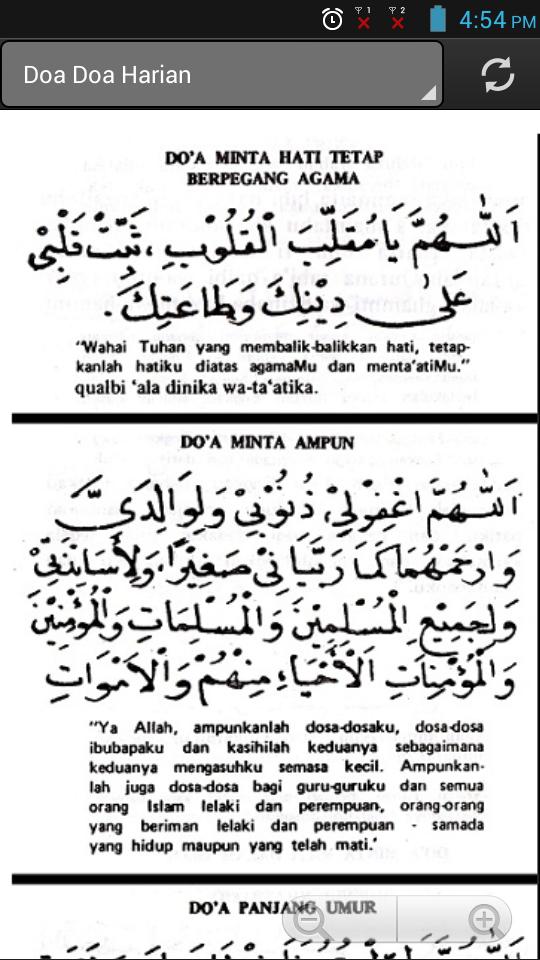 1 2 4:54 PM
Doa Doa Harian
DO'A MINTA HATI TETAP
BERPEGANG AGAMA
اَللّٰهُمَّ يَا مُقَلِّبَ الْقُلُوْبِ، ثَبِّتْ قَلْبِيْ
عَلٰى دِيْنِكَ وَطَاعَتِكَ.
"Wahai Tuhan yang membalik-balikkan hati, tetap-
kanlah hatiku diatas agamaMu dan menta'atiMu."
qualbi 'ala dinika wa-ta'atika.
DO'A MINTA AMPUN
اَللّٰهُمَّ اغْفِرْلِيْ، ذُنُوْبِيْ وَلِوَالِدَيَّ
وَارْحَمْهُمَا كَمَا رَبَّيَانِيْ صَغِيْرًا، وَلِأَسَاتِذَتِيْ
وَلِجَمِيْعِ الْمُسْلِمِيْنَ وَالْمُسْلِمَاتِ وَالْمُؤْمِنِيْنَ
وَالْمُؤْمِنَاتِ اَلْأَحْيَاءِ مِنْهُمْ وَالْاَمْوَاتِ
"Ya Allah, ampunkanlah dosa-dosaku, dosa-dosa
ibubapaku dan kasihilah keduanya sebagaimana
keduanya mengasuhku semasa kecil. Ampunkan-
lah juga dosa-dosa bagi guru-guruku dan semua
orang Islam lelaki dan perempuan, orang-orang
yang beriman lelaki dan perempuan - samada
yang hidup maupun yang telah mati.'
DO'A PANJANG UMUR